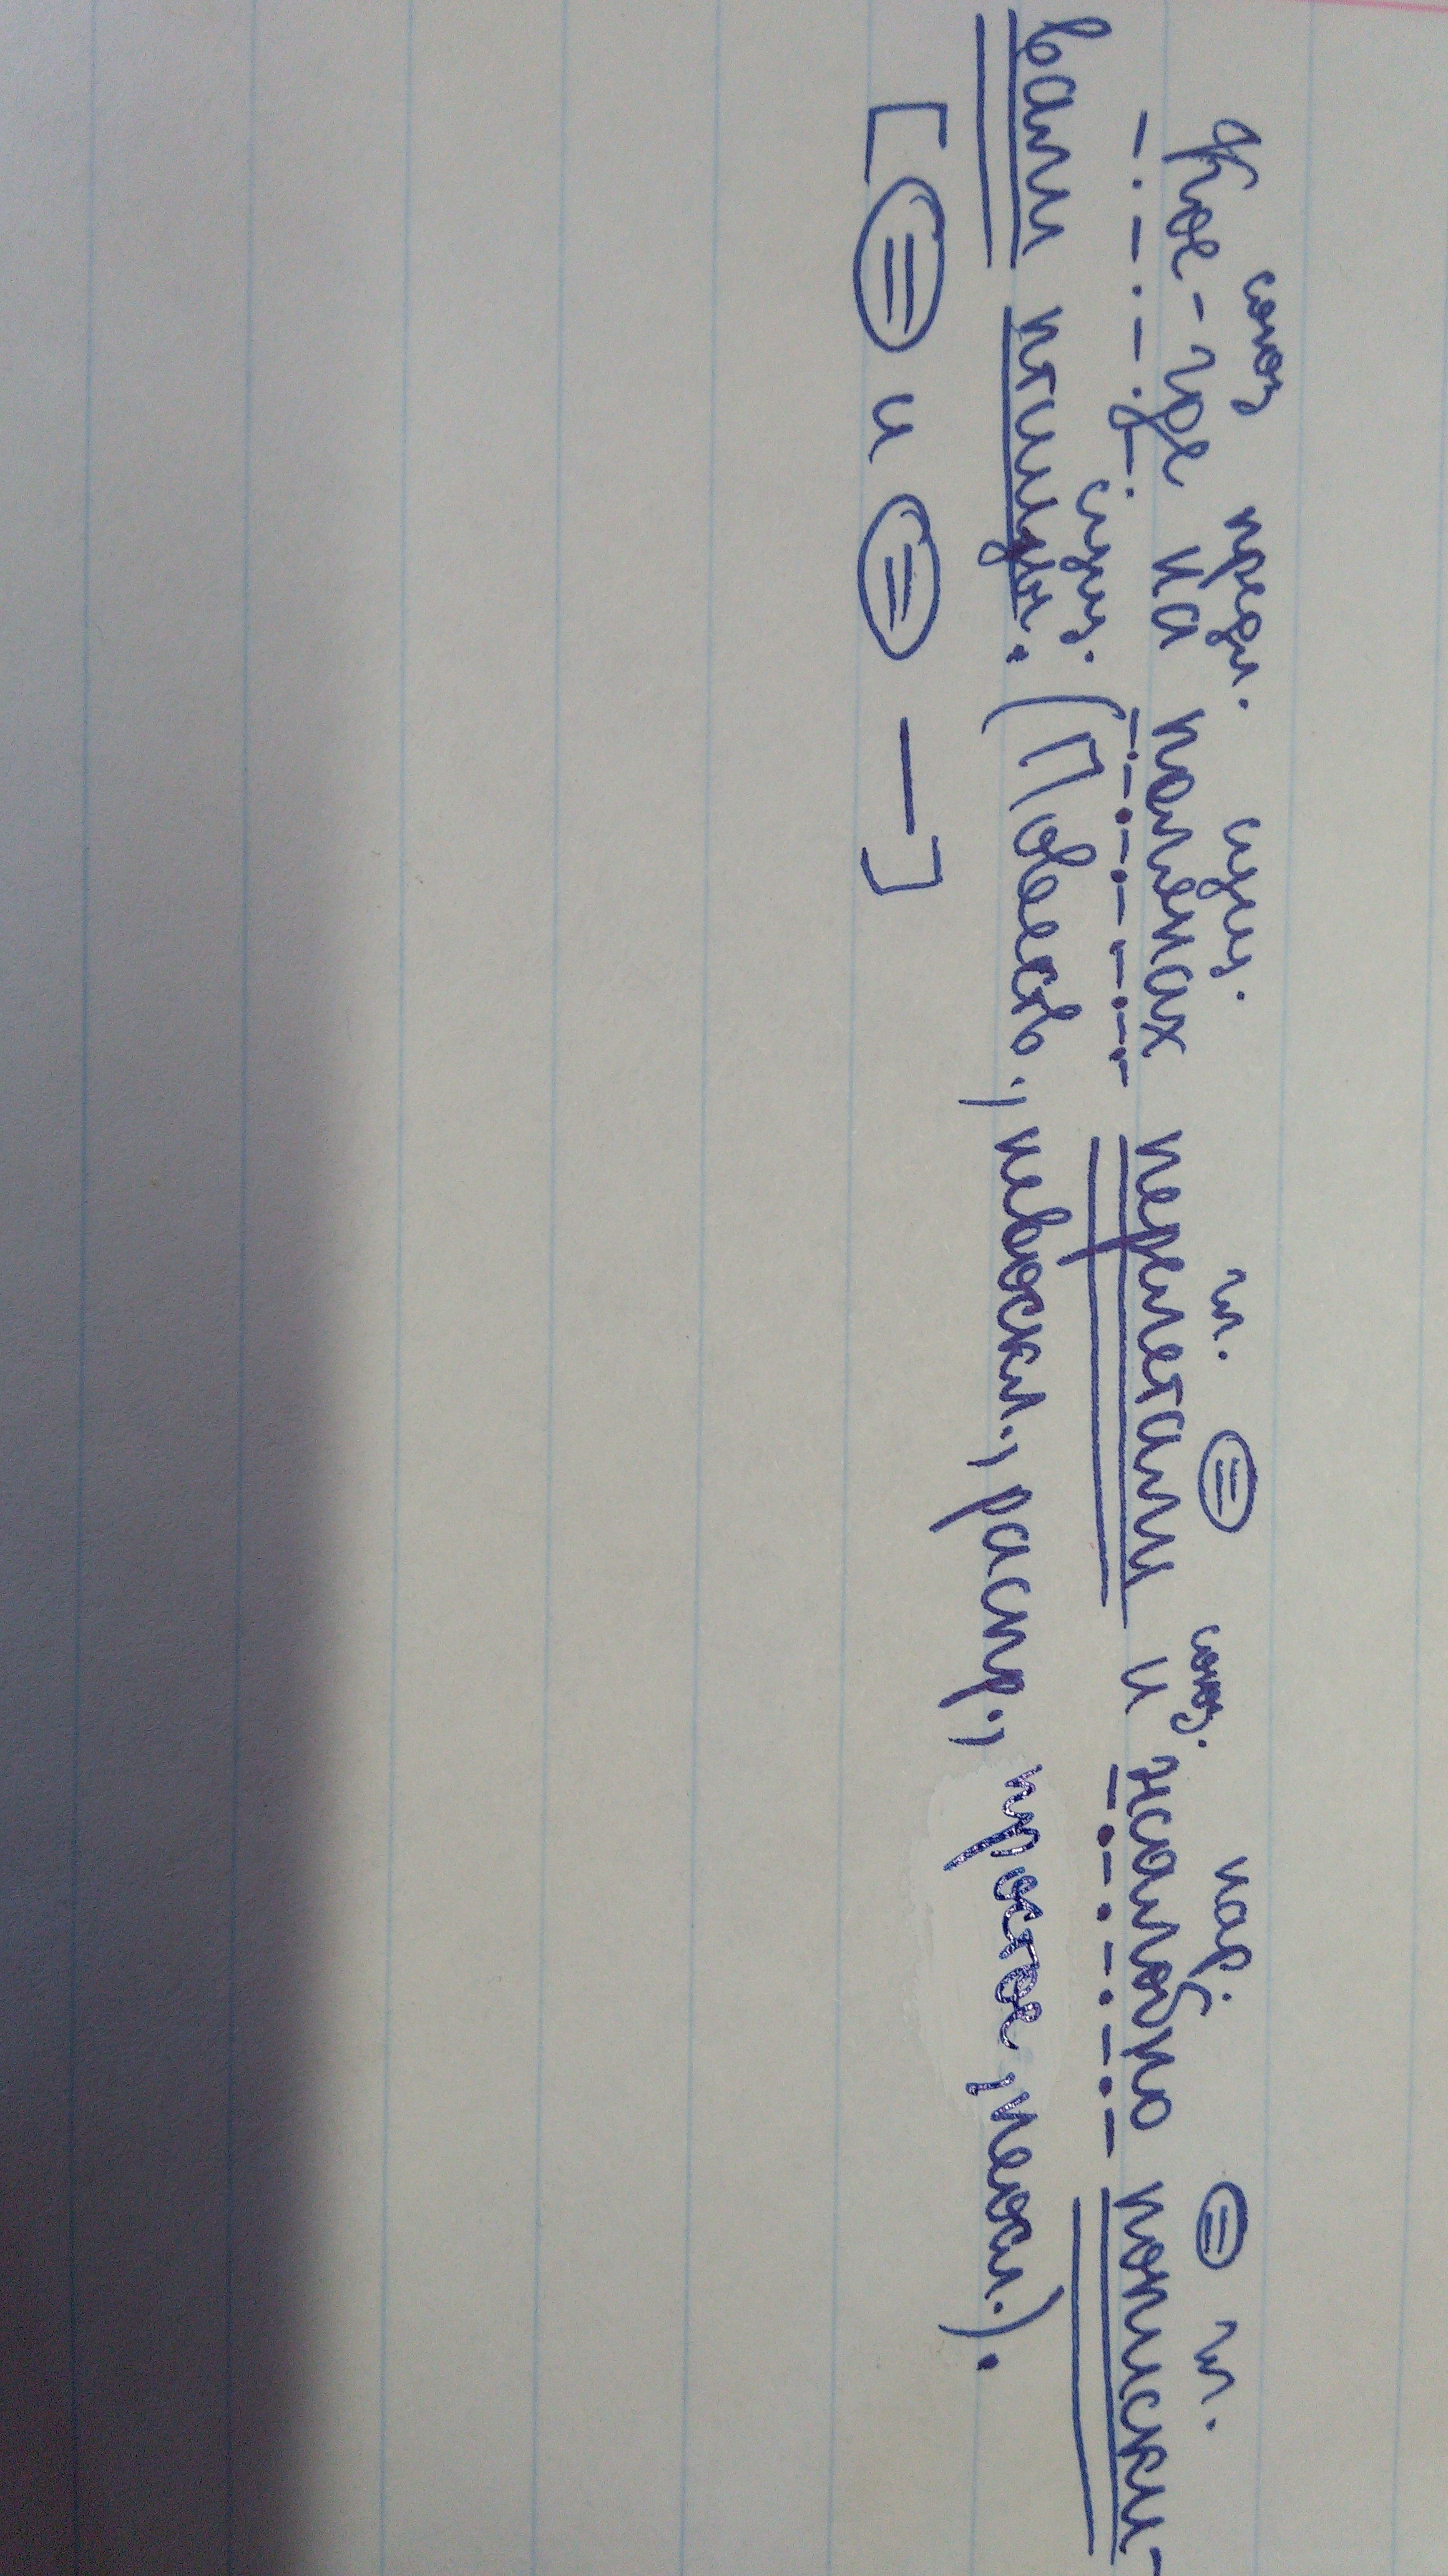 союз предл. сущ. гл. союз. нар. гл.
Кое-где на полянах перелетали и жалобно пописки-
сущ.
вали птицы. (Повеств., невоскл., распр., простое, неосл.).
[ = и = — ]